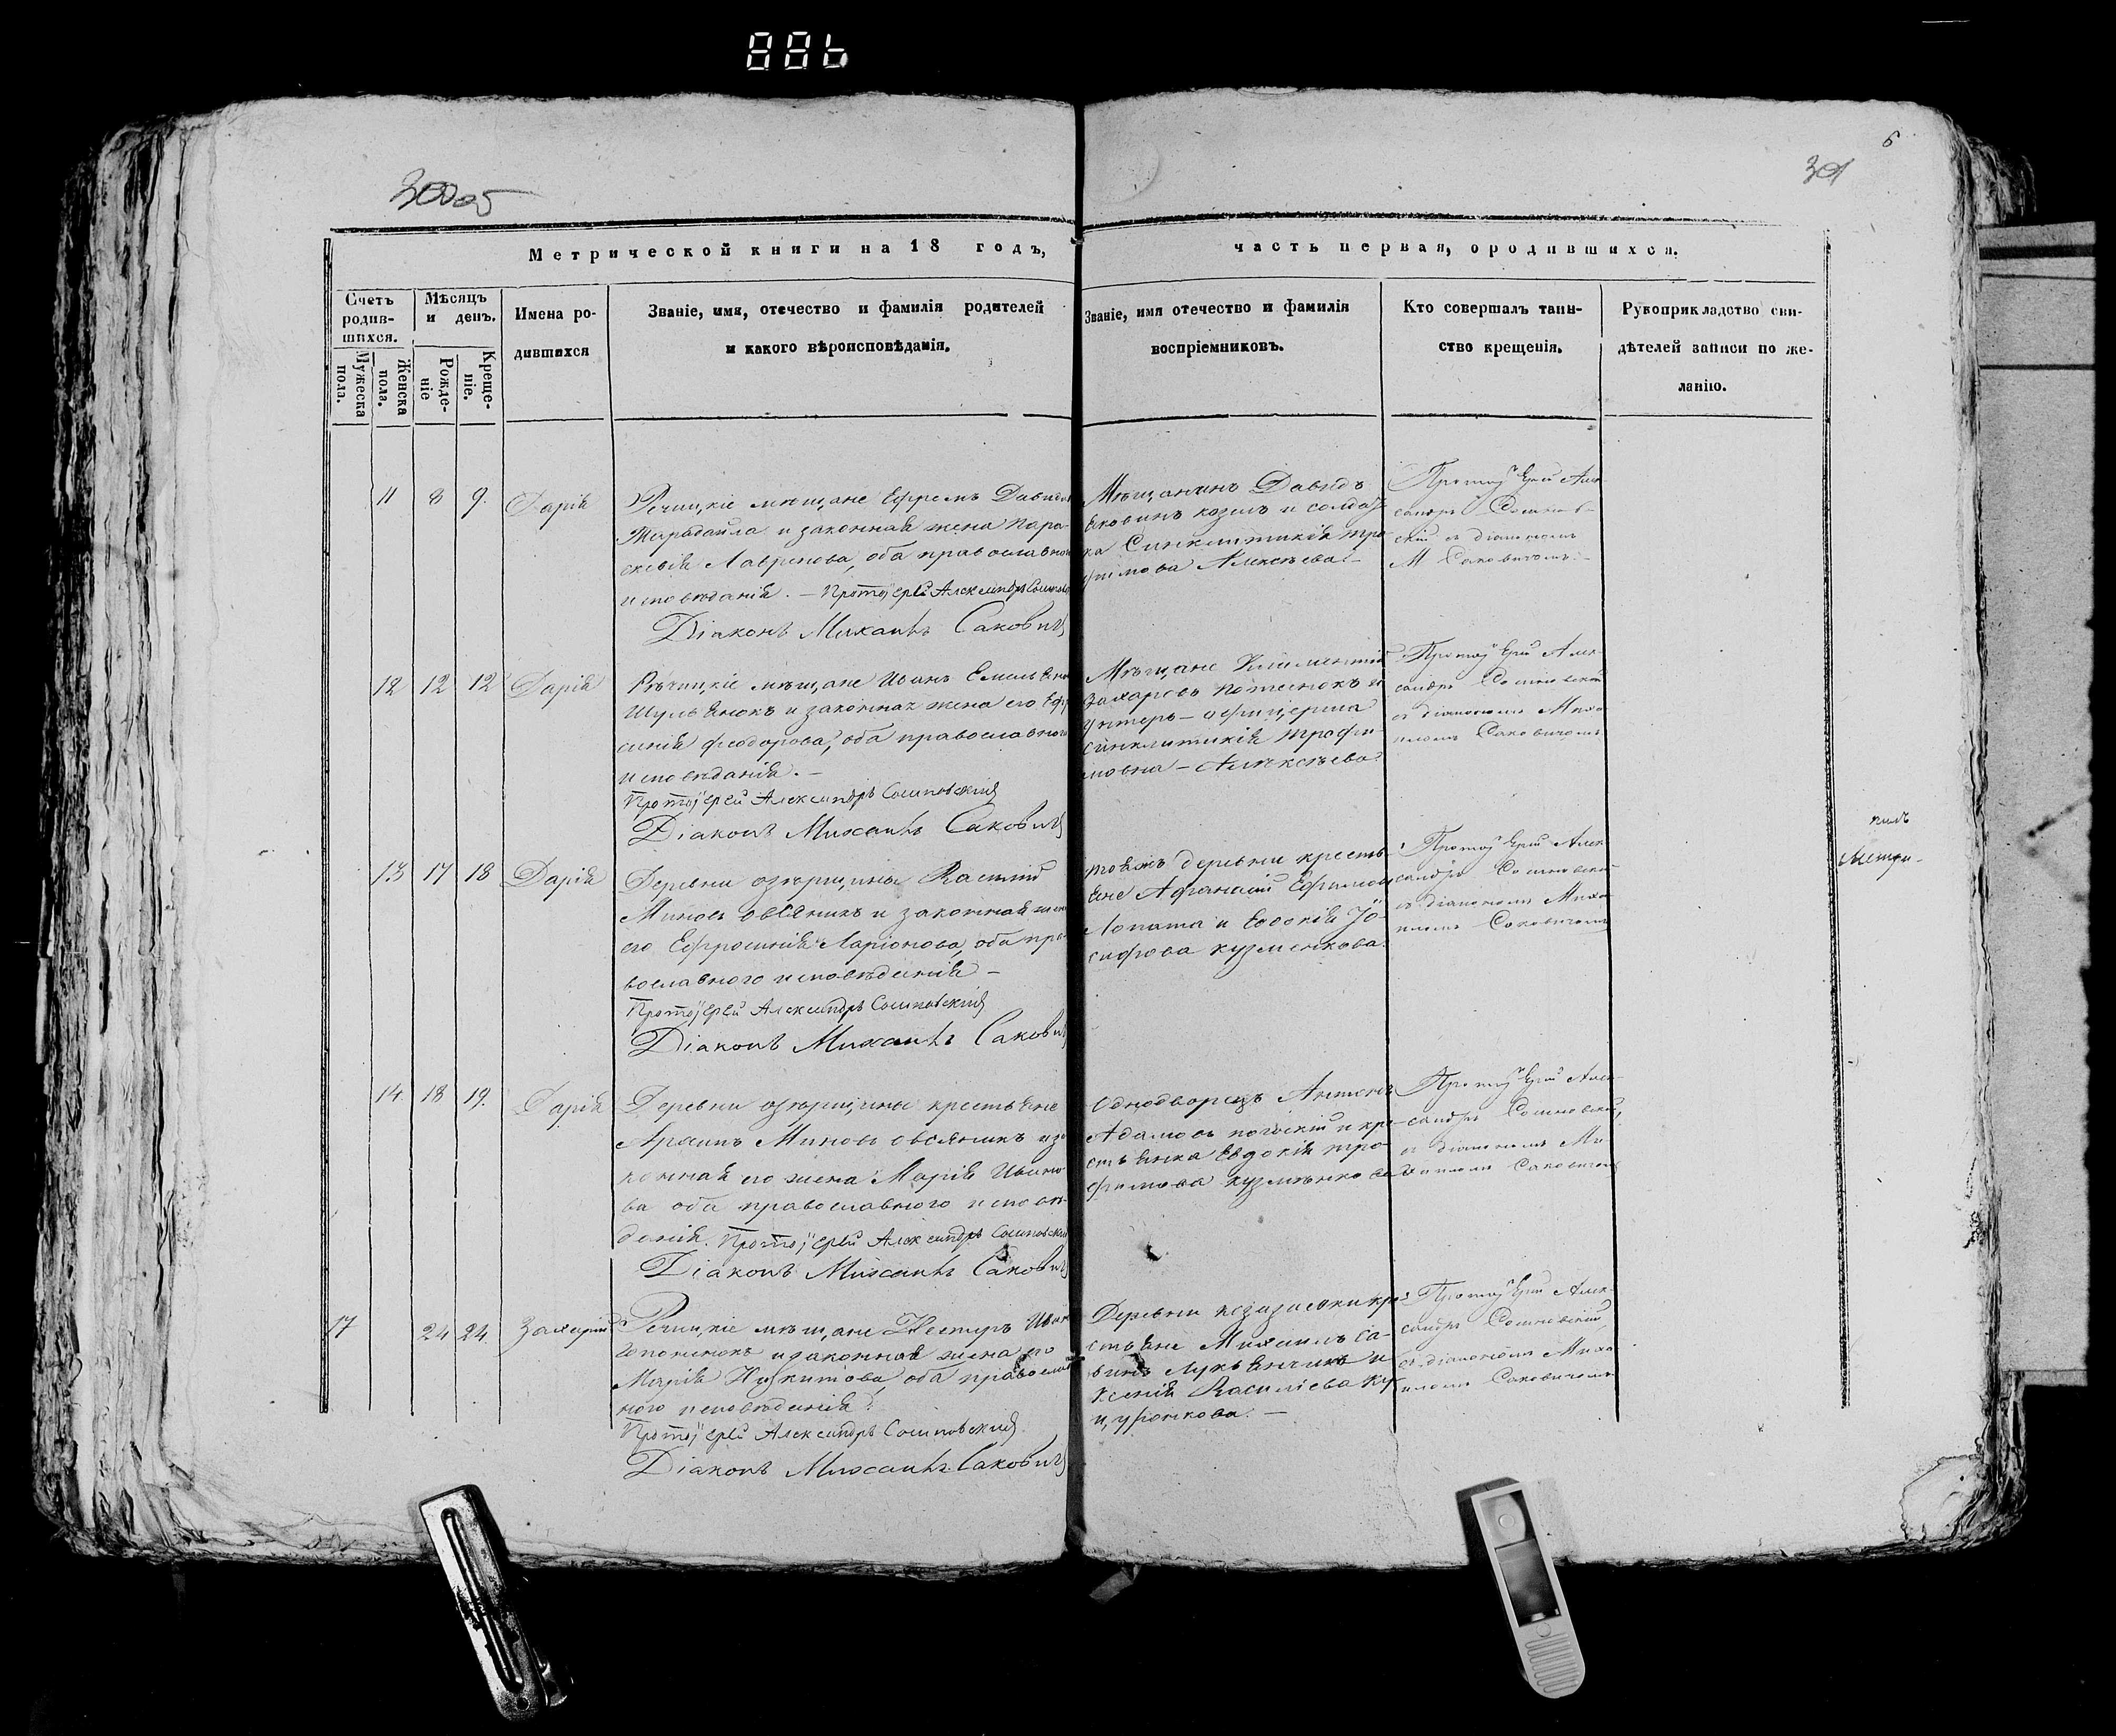 886
300об
6
301
Метрической книги на 18 годъ,
часть первая, ородившихся.
Счетъ родив-шихся.
Мѣсяцъ и день.
Имена ро-
дившихся
Званіе, имя, отечество и фамилія родителей
и какого вѣроисповѣданія.
Званіе, имя отечество и фамилія
воспріемниковъ.
Кто совершалъ таин-
ство крещенія.
Рукоприкладство сви-
дѣтелей записи по же-
ланію.
Мужеска пола.
Женска пола.
Рожде-ніе
Креще-ніе.
11 8 9. Дарія
Речицкіе мѣщане Ефремъ Давидов
и законная жена Пара-
скевія Лавренова, оба православнаго
исповѣданія. — Протоіерей Александръ
Діаконъ Михаилъ Саковичъ
Мѣщанинъ Давидъ
Яковинъ козелъ и солдат
ка Синклитикія Тро
фимова Алексѣева. —
Протоіерей Алек
сандръ
скій съ діакономъ
М Саковичемъ. —
12 12 12 Дарія
Рѣчицкіе мѣщане Иванъ Емельянов
и законная жена его Ефро
синія Феодорова, оба православного
исповѣданія. —
Протоіерей Александръ
Діаконъ Михаилъ Саковичъ
Мѣщане Климентій
Захаровъ и
унтеръ-офицерша
Синклитикія Трофи
мовна — Алексѣева
Протоіерей Алек-
сандръ
съ діакономъ Миха
иломъ Саковичемъ
13 17 18 Дарія
Деревни озерщины Василій
Миновъ овсяникъ и законная жена
его Ефросинія Ларіонова, оба пра-
вославного исповѣданія —
Протоіерей Александръ
Діаконъ Михаилъ Саковичъ
тояжъ деревни кресть-
яне Афанасій Ефимовъ
Лопата и Евдокія Іо-
сифова кузменкова.
Протоіерей Алек
сандръ
съ діакономъ Миха
иломъ Саковичемъ
14. 18 19. Дарія
Деревни озерщины крестьяне
Миновъ овсяникъ и за
конная его жена Марія Ивано
ва оба православного исповѣ-
данія. Протоіерей Александръ
Діаконъ Михаилъ Саковичъ
Однодворецъ
Адамовъ и кре-
стьянка Евдокія Тро
фимова кузменкова
Протоіерей Алек-
сандръ
съ діакономъ Ми
хаиломъ Саковичемъ
17 24 24 Захарій
Речицкіе мѣщане Несторъ Иван
и законная жена его
Марія Никитова, оба православ
ного исповѣданія.
Протоіерей Александръ
Діаконъ Михаилъ Саковичъ
Деревни кре-
стьяне Михаилъ Са-
винъ Лукьянчикъ и
Ксенія Василіева
Протоіерей Алек-
сандръ
съ діакономъ Миха
иломъ Саковичемъ